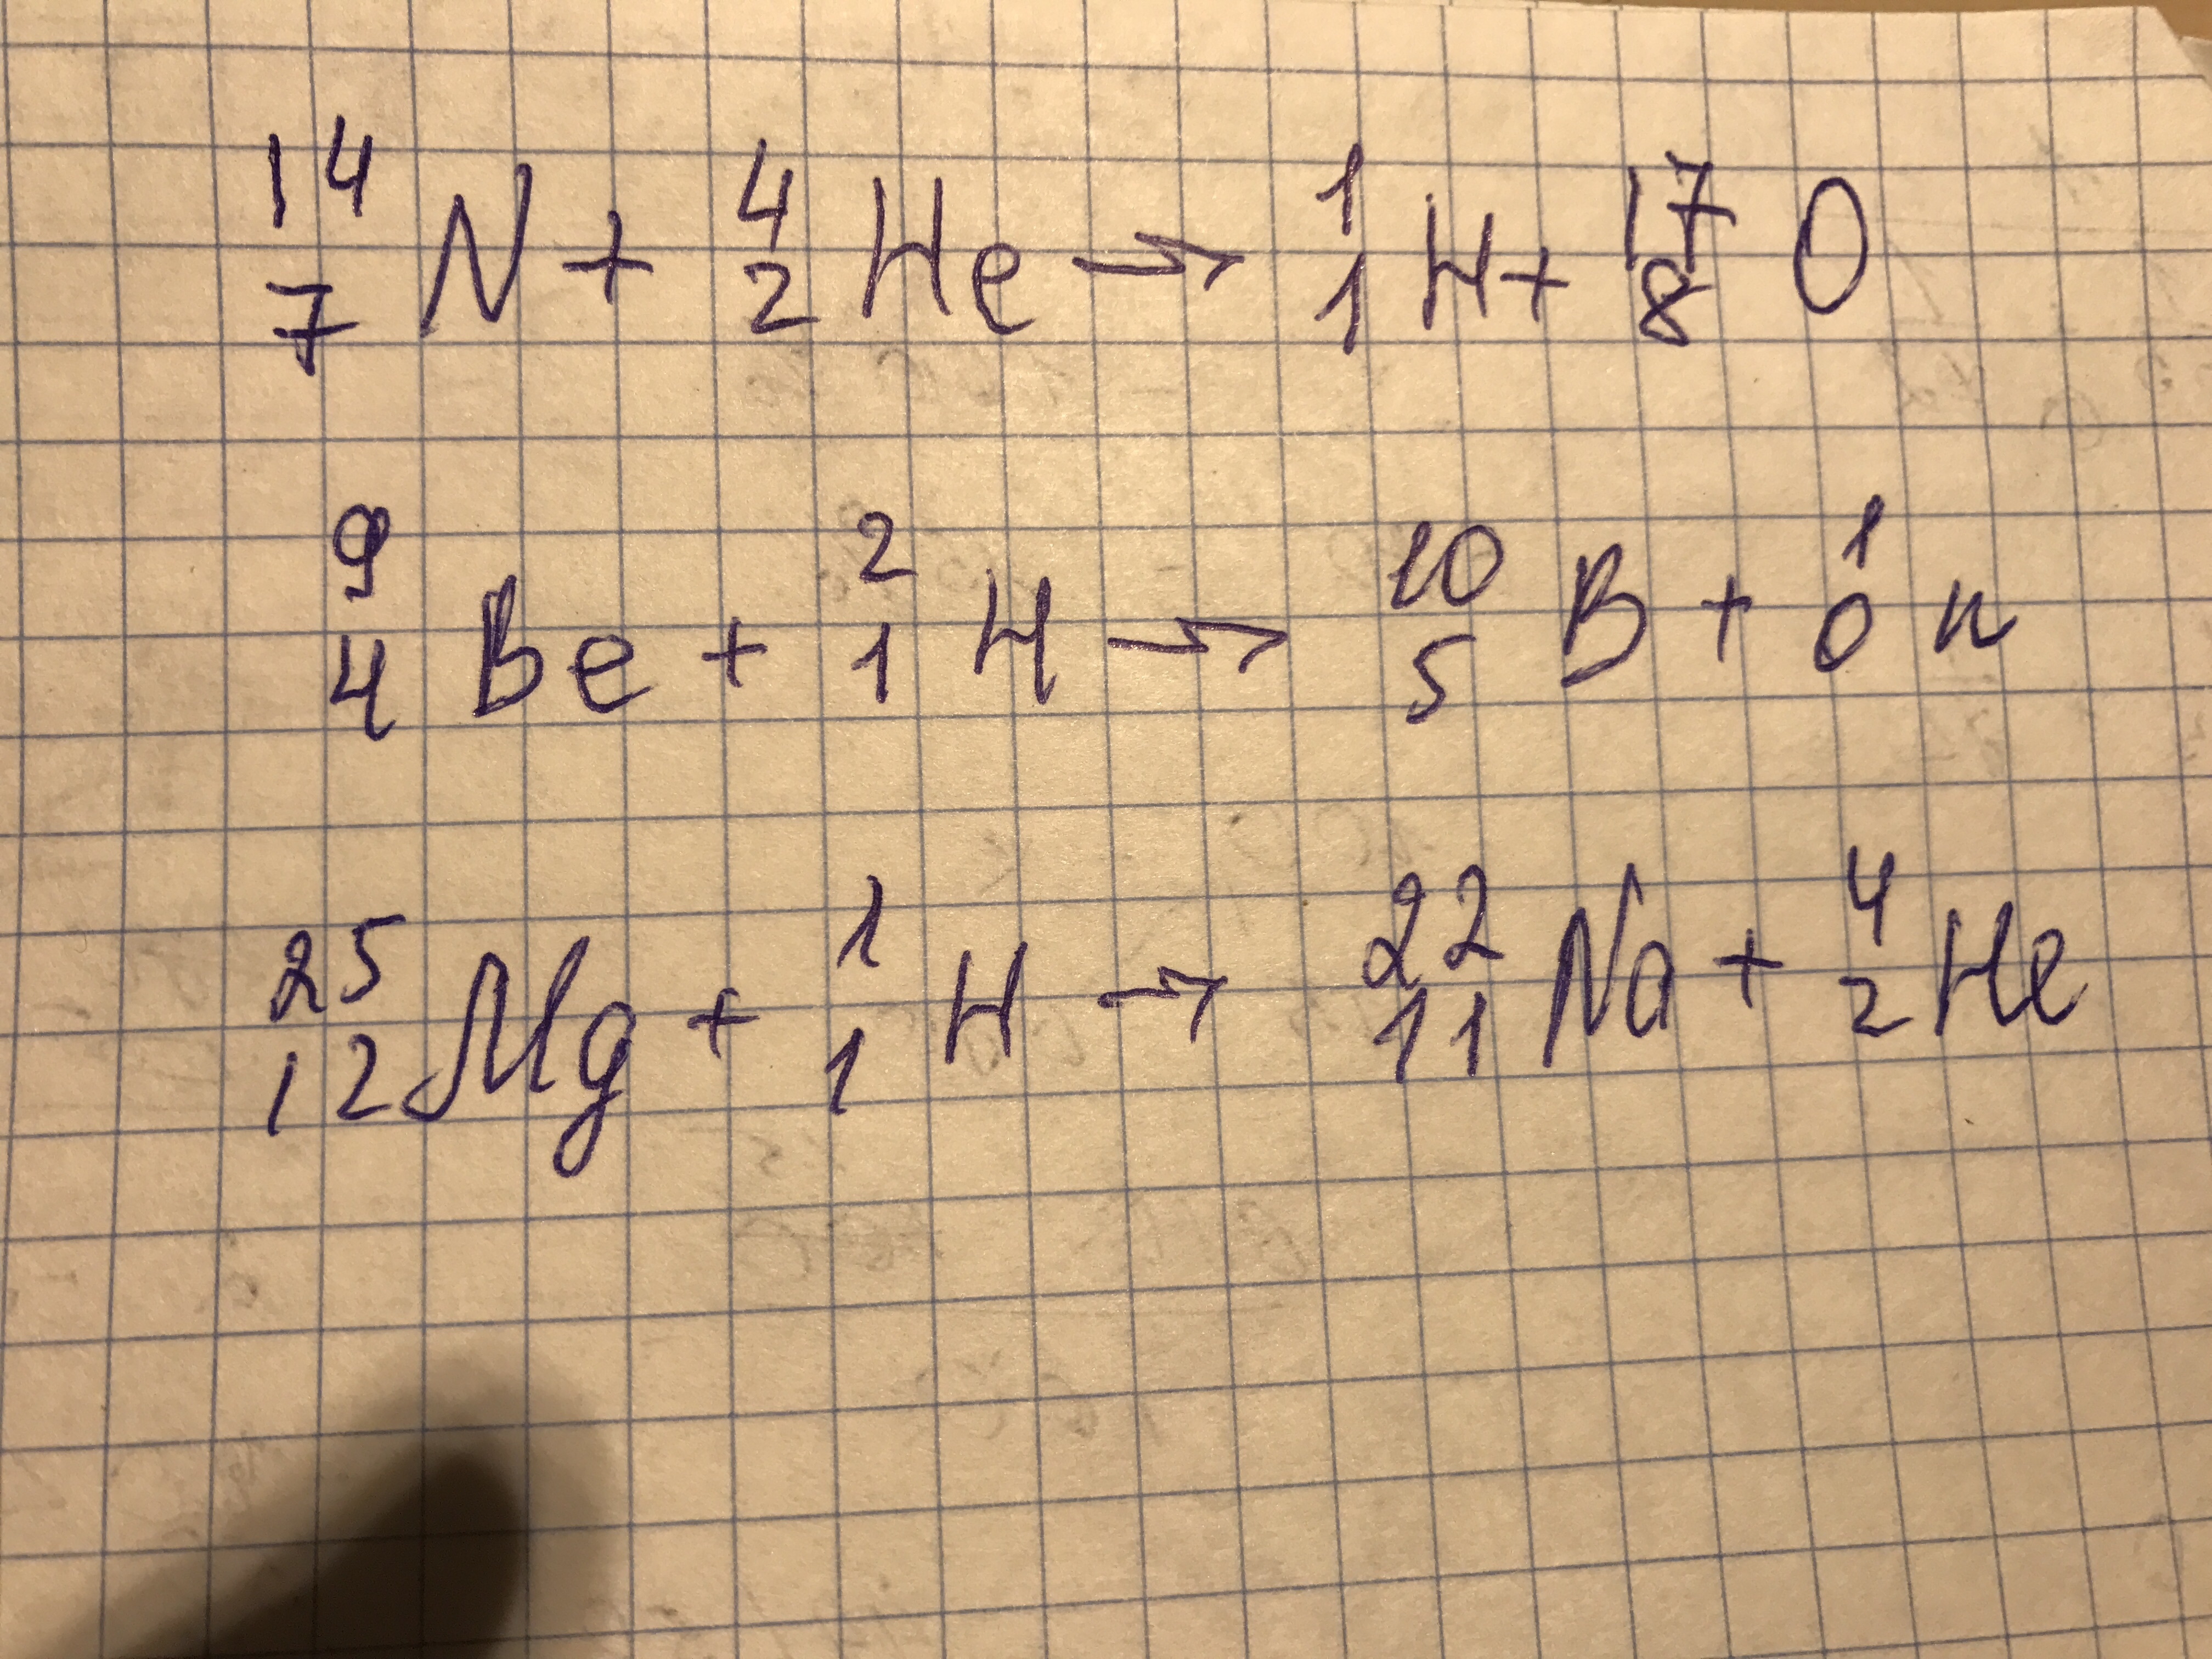 ¹⁴₇N + ⁴₂He → ¹₁H + ¹⁷₈O
⁹₄Be + ²₁H → ¹⁰₅B + ¹₀n
²⁵₁₂Mg + ¹₁H → ²²₁₁Na + ⁴₂He